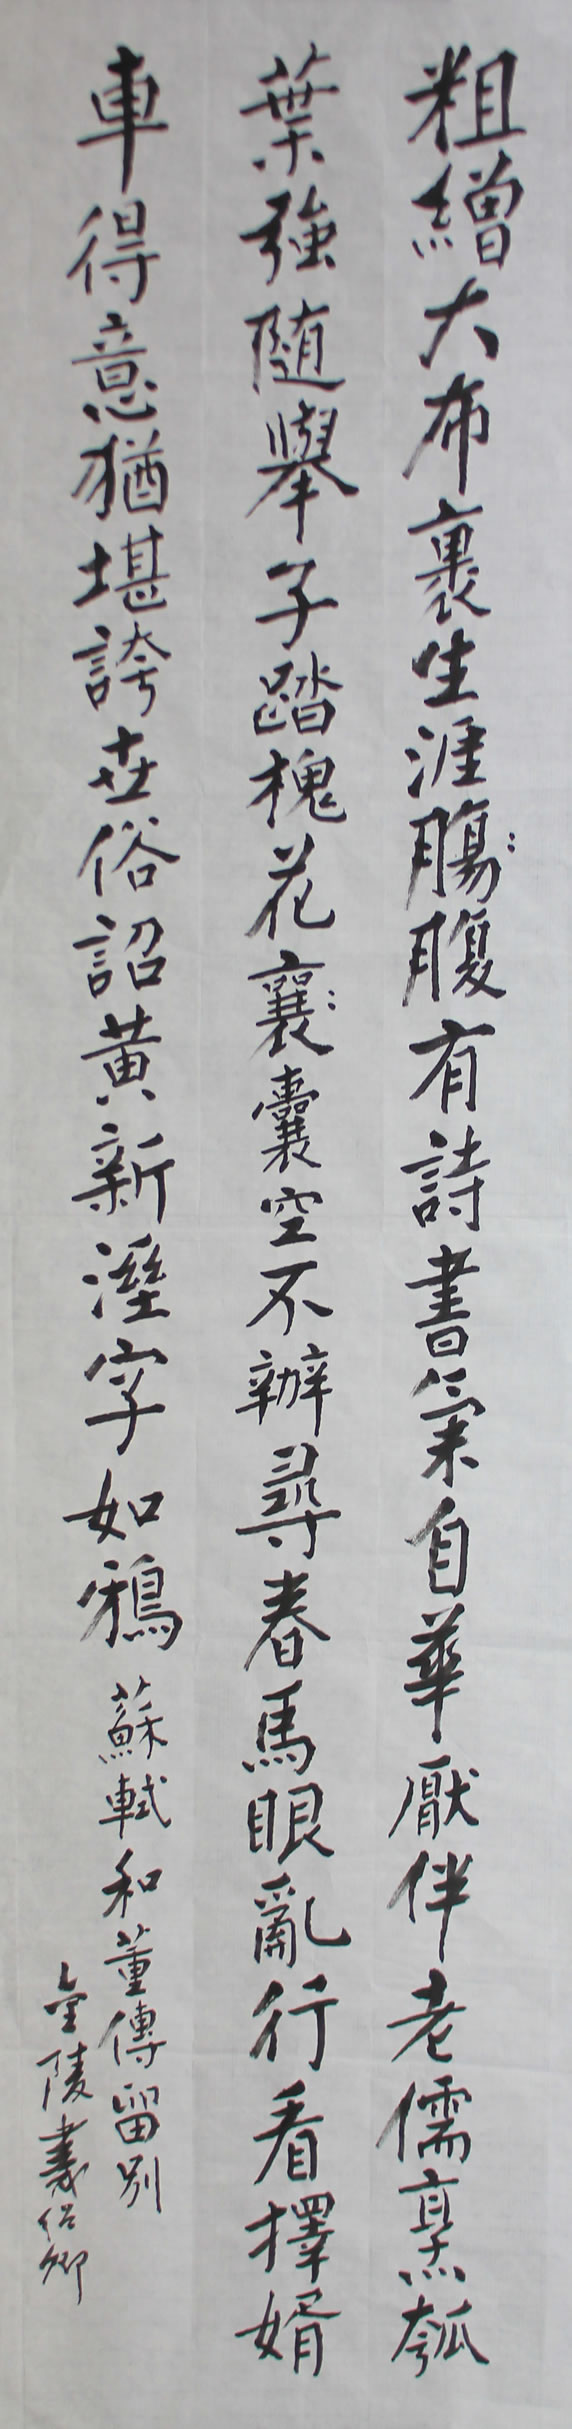 粗繒大布裹生涯腸腹有詩書氣自華厭伴老儒烹瓠
葉強隨舉子踏槐花襄囊空不辦尋春馬眼亂行看擇婿
車得意猶堪誇世俗詔黃新溼字如鴉 蘇軾和董傳留別
金陵